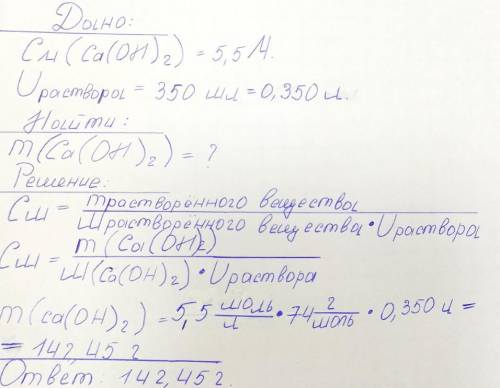 Дано:
См (Ca(OH)₂) = 5,5 М.
Vраствора = 350 мл = 0,350 л.
Найти:
m(Ca(OH)₂) = ?
Решение:
См = mрастворённого вещества / Мрастворённого вещества • Vраствора
См = m(Ca(OH)₂) / М(Ca(OH)₂) • Vраствора
m(Ca(OH)₂) = 5,5 моль/л • 74 г/моль • 0,350 л =
= 142,45 г
Ответ: 142,45 г.